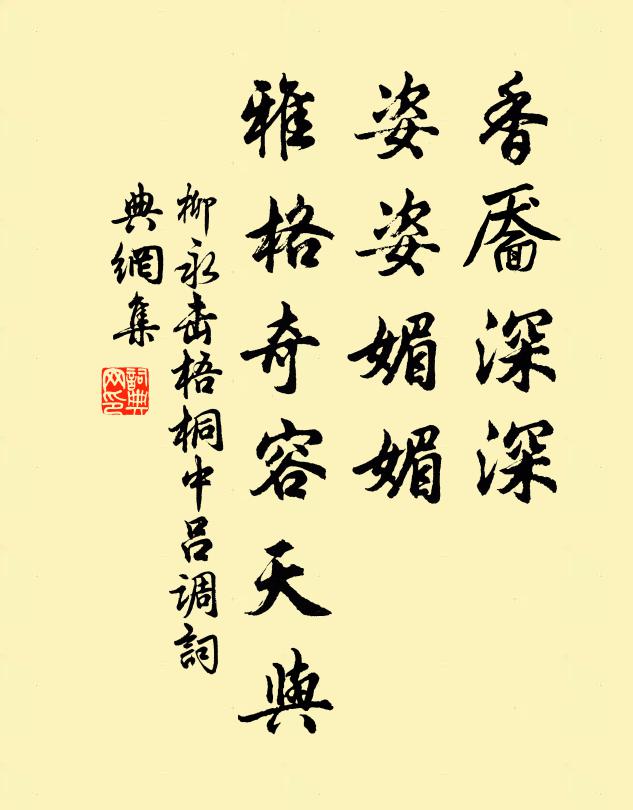 香靨深深
姿姿媚媚
雅格奇容天與
柳永击梧桐中吕調詞
典網集
詞典
网印